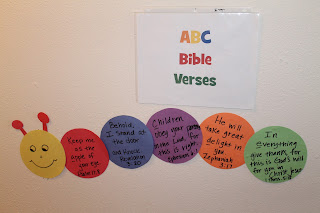 ABC
Bible
Verses
Keep me
as the
apple of
your eye.
Behold,
I stand at
the door
and knock.
Revelation
3:20
Children
obey your parents
in the Lord for
this is right.
Ephesians 6:1
He will
take great
delight in
you
Zephaniah
3:17
In
Everything
give thanks for
this is God's will
for you in
Christ Jesus